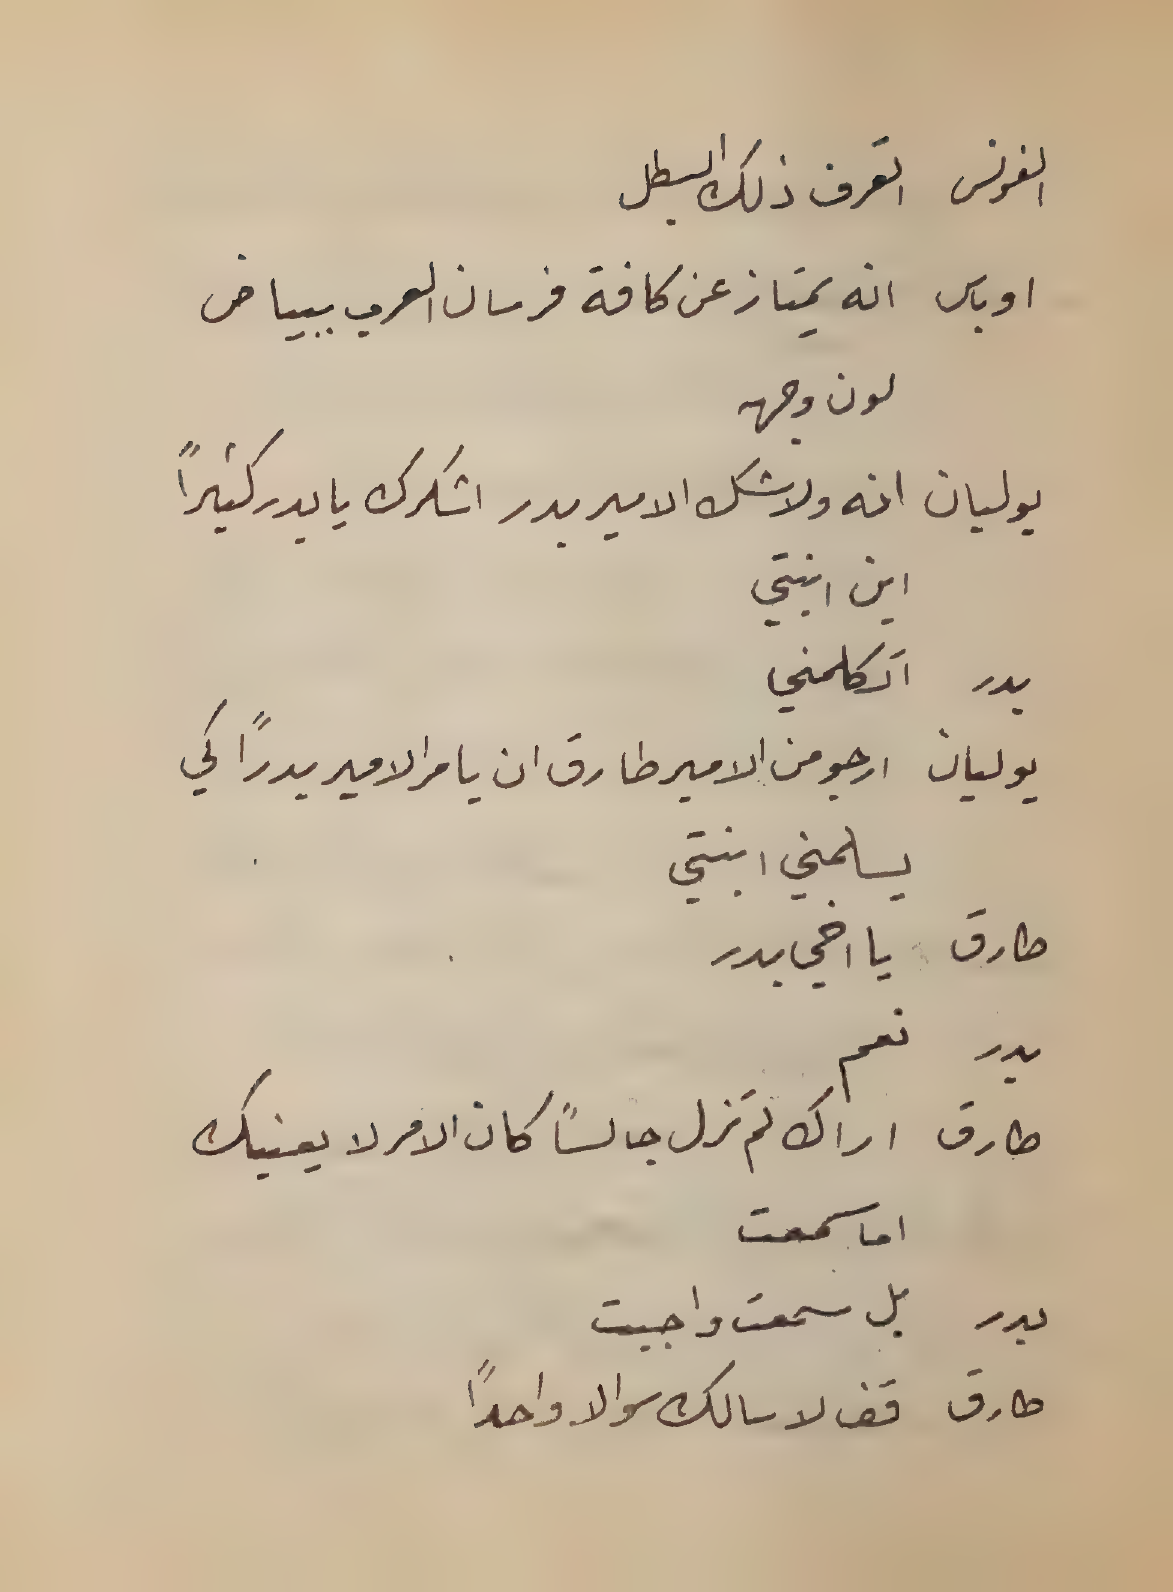 الفونس اتعرف ذلك البطل
اوباس انه يمتاز عن كافة فرسان العرب ببياض
لون وجهه
يوليان انه ولاشك الامير بدر اشكرك يا بدر كثيراً
اين ابنتي
بدر اتكلمني
يوليان ارجو من الامير طارق ان يامر الامير بدراً كي
يسلمني ابنتي
طارق يا اخي بدر
بدر نعم
طارق اراك لم تزل جالساً كان الامر لا يعنيك
اما سمعت
بدر بل سمعت واجبت
طارق قف لا سالك سوالا واحداً